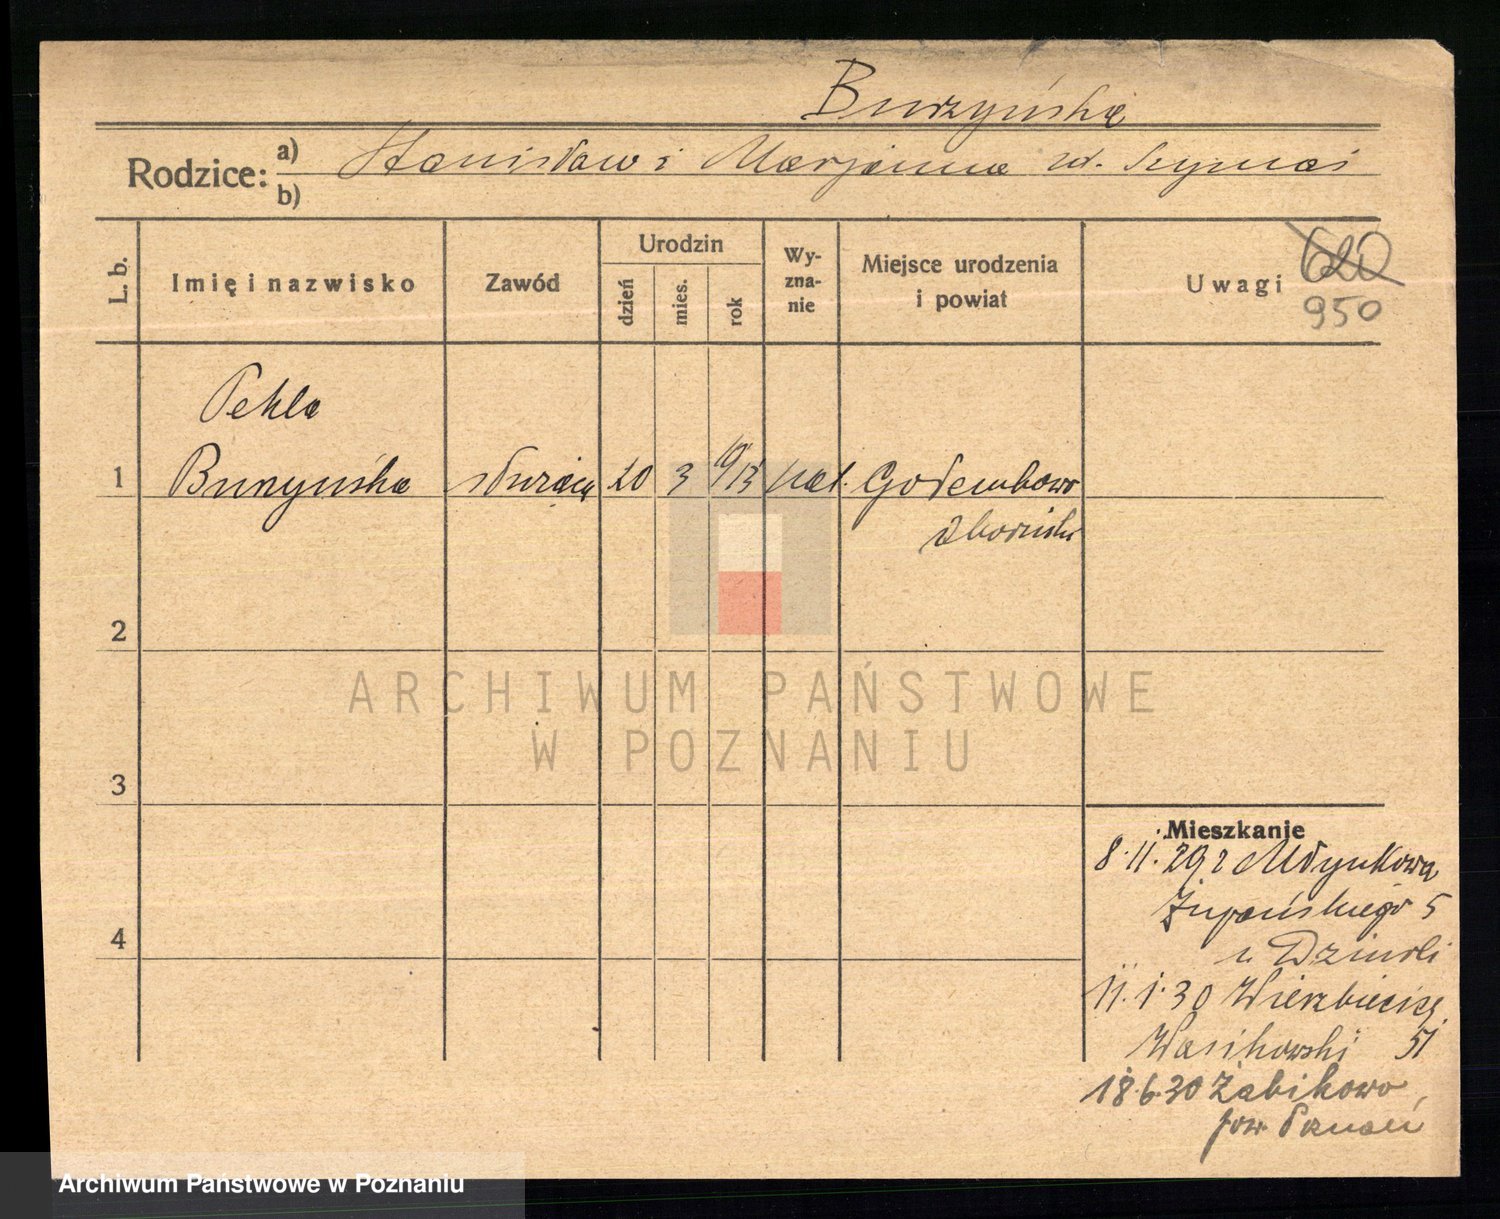 Burzyńska
Rodzice: a) Stanisław i Marjanna zd. Szymaś
b)
L. b. Imię i nazwisko Zawód Urodzin dzień mies. rok Wy-zna-nie Miejsce urodzenia i powiat Uwagi 620
950
Tekla
1 Burzyńska służąca 20 3 1913 kat. Gołembowo
Obornicki
2
3
4
Mieszkanie
8.11.29 z Młynkowa
Żupańskiego 5
u
11.1.30 Wierzbięcice
Wasikowski 51
18.6.30 Żabikowo
pow. Poznań
ARCHIWUM PAŃSTWOWE
W POZNANIU
Archiwum Państwowe w Poznaniu